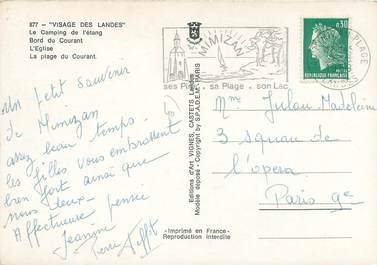 877 — "VISAGE DES LANDES"
Le Camping de l'étang
Bord du Courant
L'Eglise
La plage du Courant.
Un petit souvenir
de Mimizan
assez beau temps.
les filles vous embrassent
bien fort ainsi que
nous deux.
Affectueuse pensée
Jeanine
Editions d'Art VIGNES, CASTETS, Landes
Modèle déposé - Copyright by S.P.A.D.E.M. PARIS
Imprimé en France
Reproduction interdite
MIMIZAN
ses Pins sa Plage son Lac
0,30
REPUBLIQUE FRANÇAISE
PLAGE
Mme Julau Madeleine
3 square de
l'opera
Paris 9e